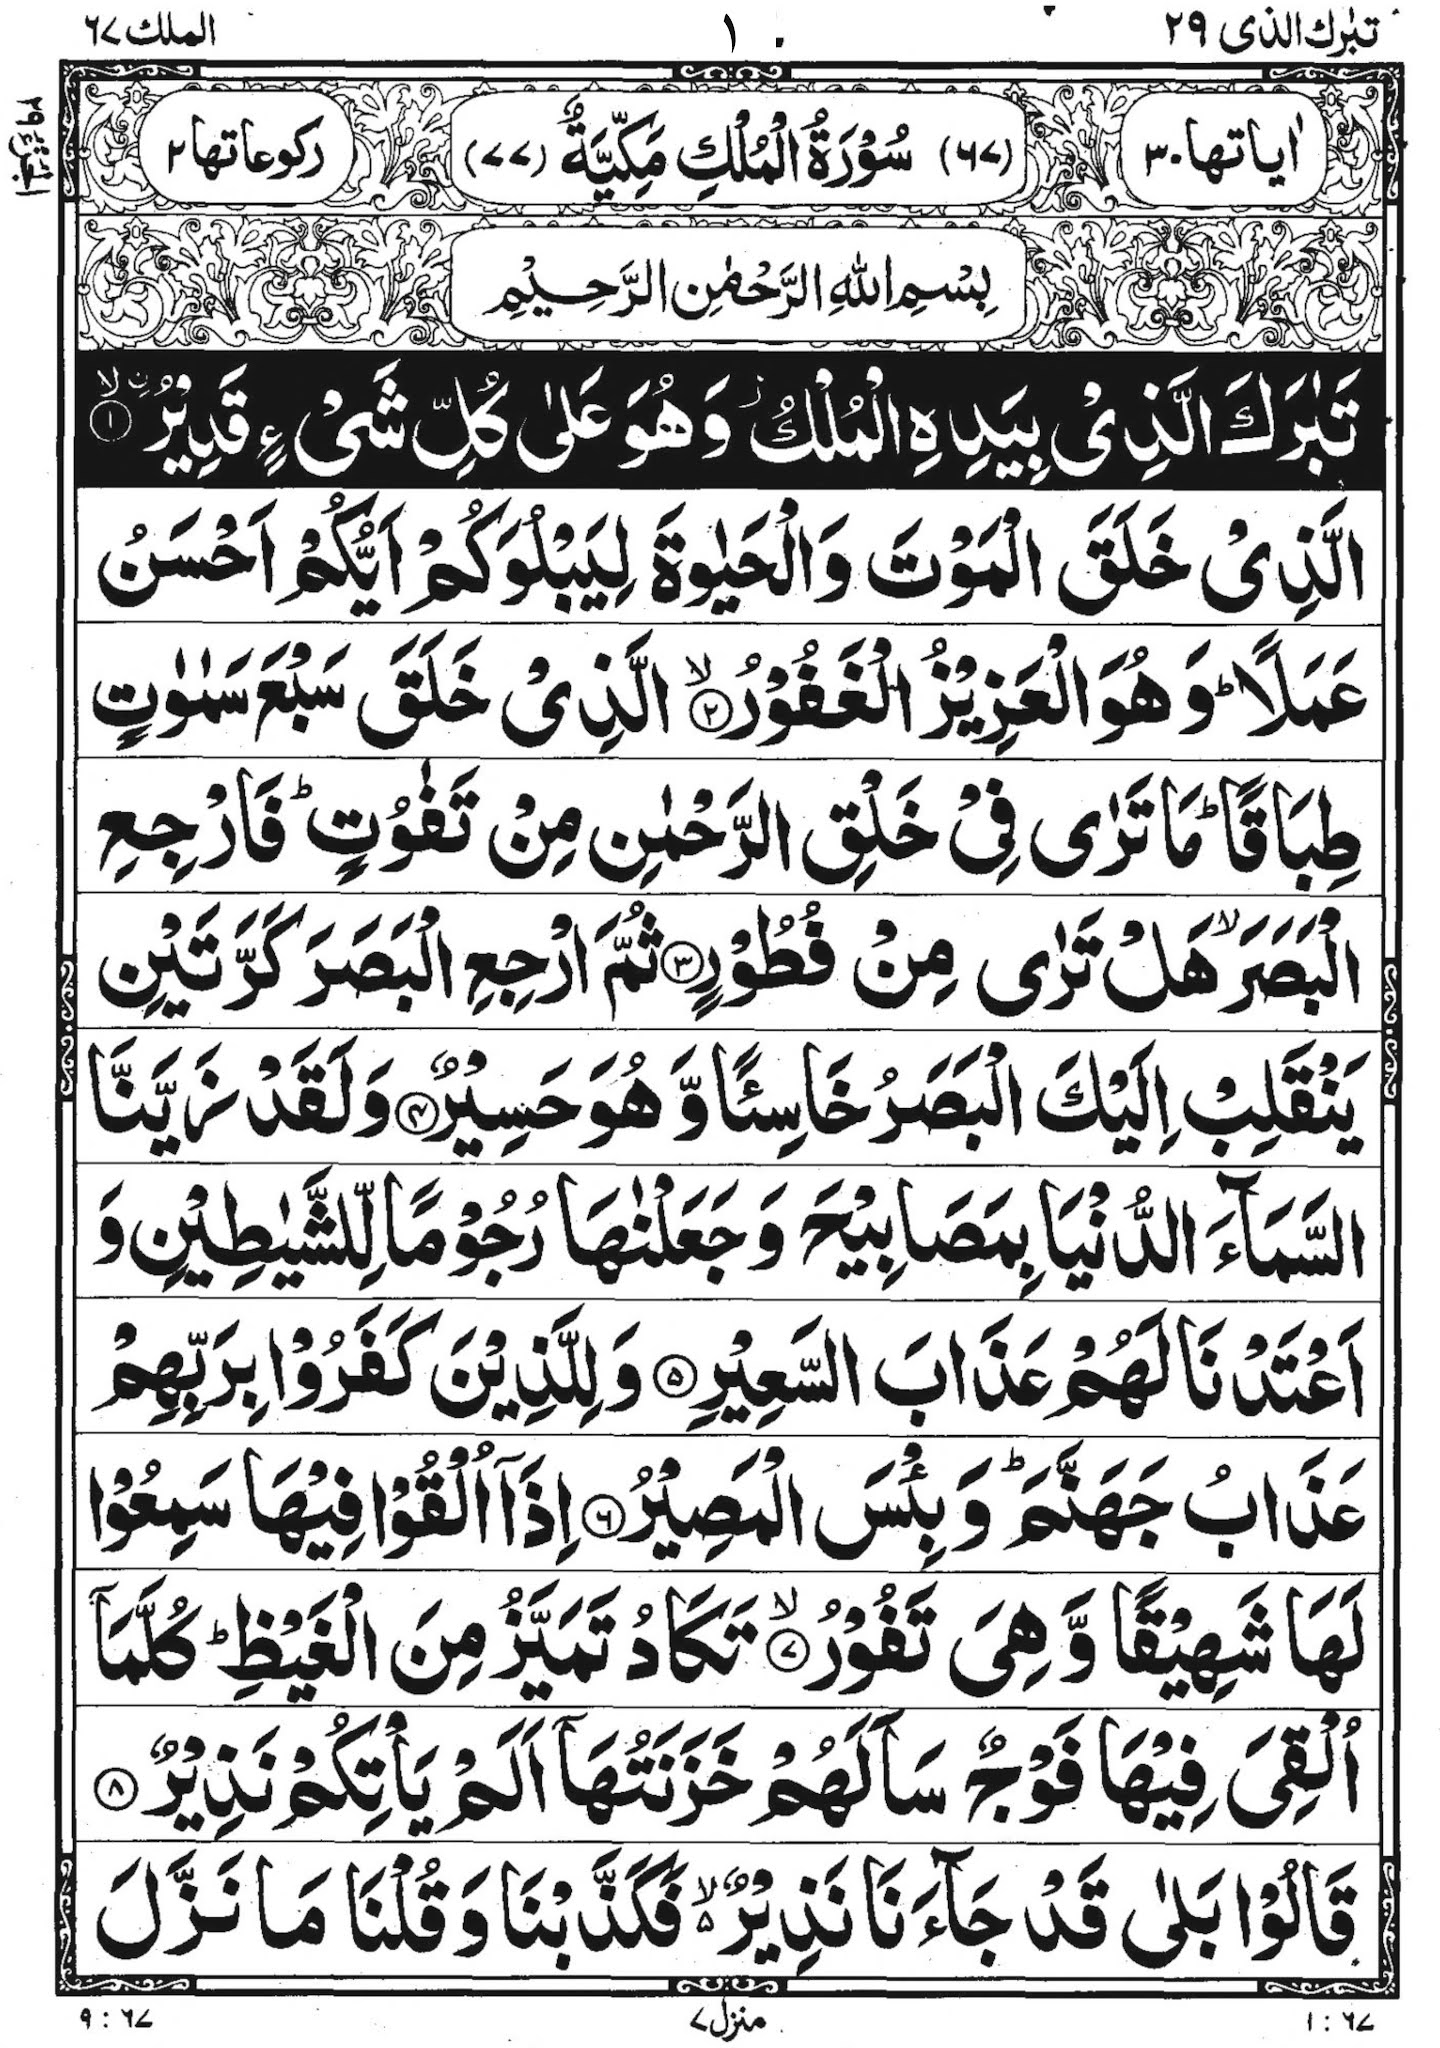 تبٰرك الذی ۲۹
۱
الملك ۶۷
اٰیاتها ۳۰
(۶۷) سُوْرَةُ الْمُلْكِ مَكِّیَّةٌ (۷۷)
ركوعاتها ۲
بِسْمِ اللهِ الرَّحْمٰنِ الرَّحِیْمِ
تَبٰرَكَ الَّذِیْ بِیَدِهِ الْمُلْكُ ز وَهُوَ عَلٰی كُلِّ شَیْءٍ قَدِیْرُ ۙ ۱
الَّذِیْ خَلَقَ الْمَوْتَ وَالْحَیٰوةَ لِیَبْلُوَكُمْ اَیُّكُمْ اَحْسَنُ
عَمَلًا ؕ وَهُوَ الْعَزِیْزُ الْغَفُوْرُ ۙ ۲ الَّذِیْ خَلَقَ سَبْعَ سَمٰوٰتٍ
طِبَاقًا ؕ مَا تَرٰی فِیْ خَلْقِ الرَّحْمٰنِ مِنْ تَفٰوُتٍ ؕ فَارْجِعِ
الْبَصَرَ ۙ هَلْ تَرٰی مِنْ فُطُوْرٍ ۳ ثُمَّ ارْجِعِ الْبَصَرَ كَرَّتَیْنِ
یَنْقَلِبْ اِلَیْكَ الْبَصَرُ خَاسِئًا وَّهُوَ حَسِیْرٌ ۴ وَلَقَدْ زَیَّنَّا
السَّمَآءَ الدُّنْیَا بِمَصَابِیْحَ وَجَعَلْنٰهَا رُجُوْمًا لِّلشَّیٰطِیْنِ وَ
اَعْتَدْنَا لَهُمْ عَذَابَ السَّعِیْرِ ۵ وَلِلَّذِیْنَ كَفَرُوْا بِرَبِّهِمْ
عَذَابُ جَهَنَّمَ ؕ وَبِئْسَ الْمَصِیْرُ ۶ اِذَاۤ اُلْقُوْا فِیْهَا سَمِعُوْا
لَهَا شَهِیْقًا وَّهِیَ تَفُوْرُ ۙ ۷ تَكَادُ تَمَیَّزُ مِنَ الْغَیْظِ ؕ كُلَّمَاۤ
اُلْقِیَ فِیْهَا فَوْجٌ سَاَلَهُمْ خَزَنَتُهَاۤ اَلَمْ یَاْتِكُمْ نَذِیْرٌ ۸
قَالُوْا بَلٰی قَدْ جَآءَنَا نَذِیْرٌ ۙ۵ فَكَذَّبْنَا وَقُلْنَا مَا نَزَّلَ
۱ : ۶۷
منزل ۷
۹ : ۶۷